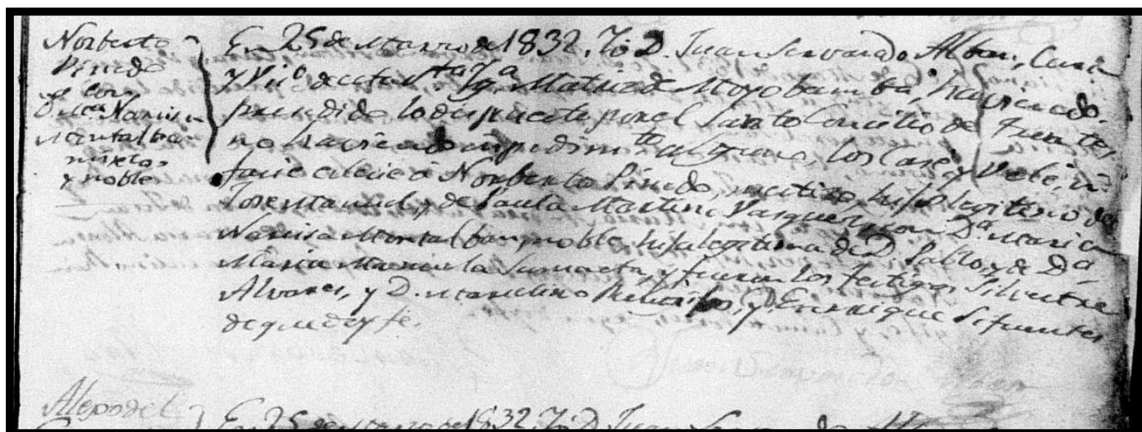 Norberto
Pinedo
con
D.ª Narisa
Montalban
mixto
y noble
En 25 de Marzo de 1832. Yo D. Juan Servando Alban, Cura
y Vic.º de esta Sta Yg.ª Matriz de Moyobamba, haviendo
precedido lo dispuesto por el Santo Concilio de Trento,
no haviendo impedim.to alguno los Casé, y Velé, in
facie eclecie á Norberto Pinedo, mestizo, hijo legitimo de
Jose Manuel, y de Paula Martina Vasquez, con D.ª Maria
Narisa Montalban, noble, hija legitima de D. Pablo, y de D.ª
Maria Manuela y fueron los testigos Silvestre
Alvares, y D. Marcelino y D. Enrrique Sifuentes
de que doy fe.
En 25 de Marzo de 1832. Yo D. Juan Servando